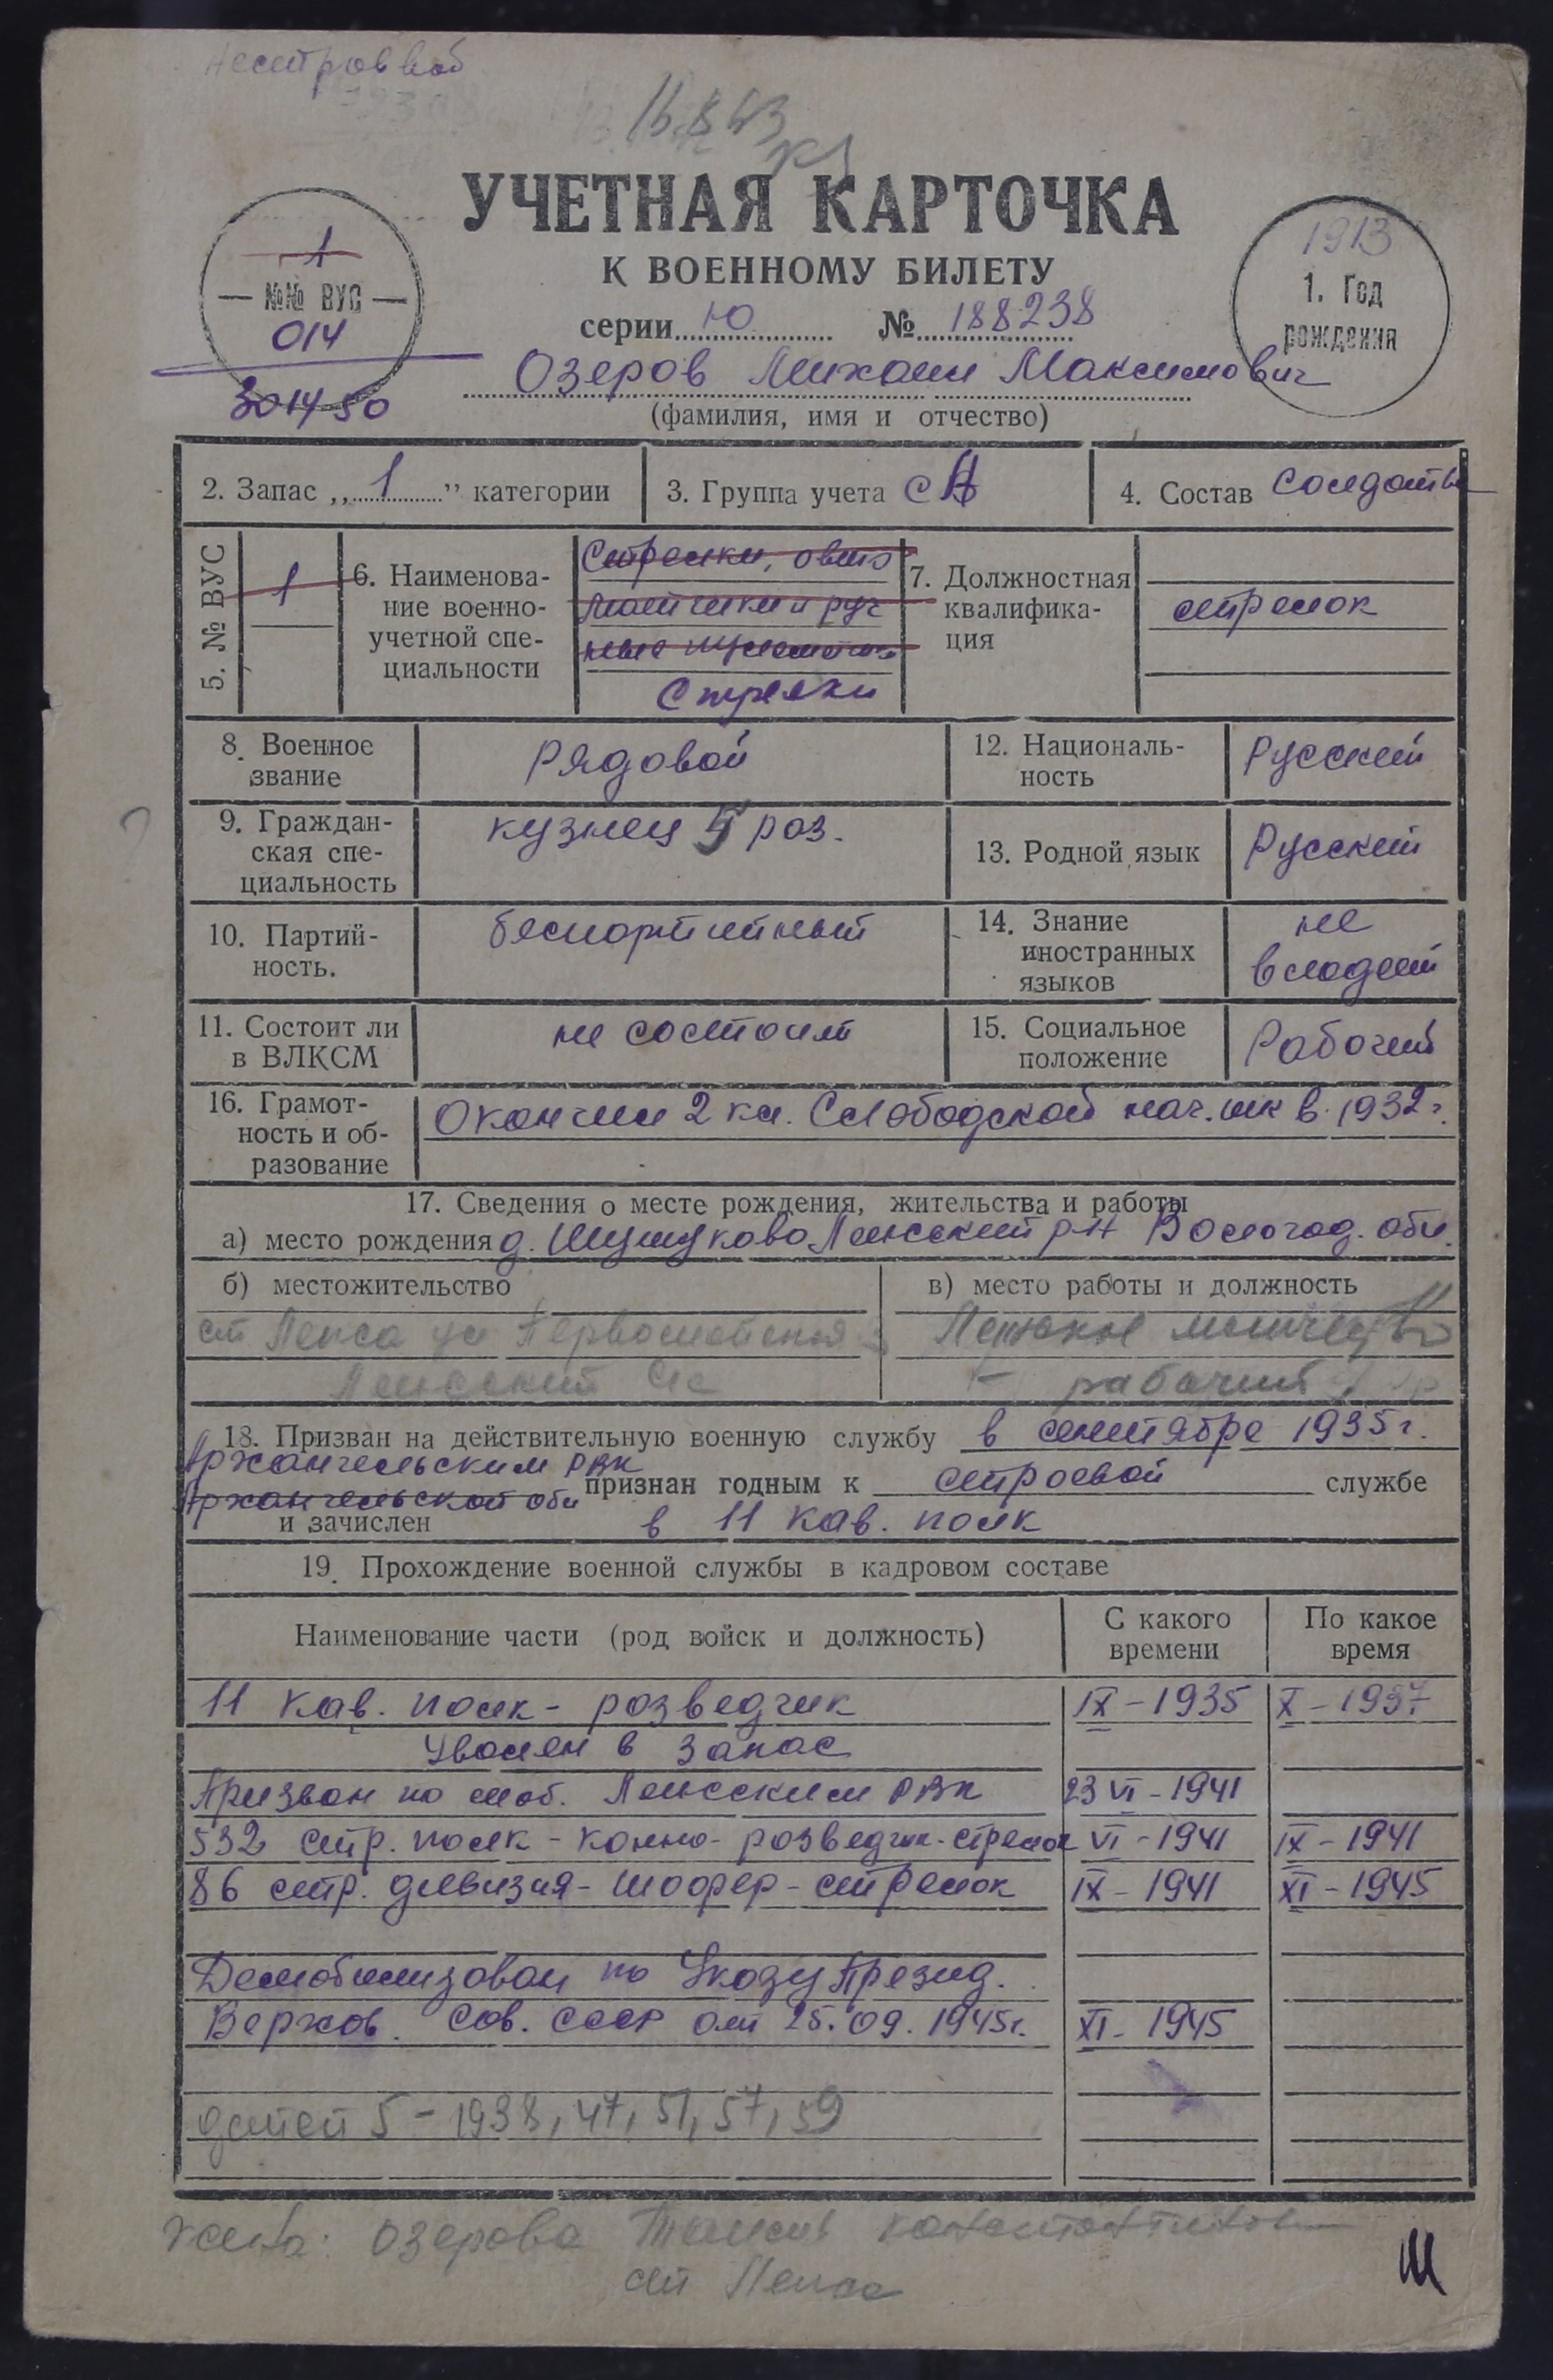 Нестроевой
УЧЕТНАЯ КАРТОЧКА
К ВОЕННОМУ БИЛЕТУ
серии Ю № 188238
1
№№ ВУС
014
301450
1913
1. Год
рождения
Озеров Михаил Максимович
(фамилия, имя и отчество)
2. Запас „1” категории
3. Группа учета СА
4. Состав солдаты
5. № ВУС
1
6. Наименова-
ние военно-
учетной спе-
циальности
Стрелки, авто
матчики и руч
ные пулеметчи
Стрелки
7. Должностная
квалифика-
ция
стрелок
8. Военное
звание
рядовой
12. Националь-
ность
Русский
9. Граждан-
ская спе-
циальность
кузнец 5 раз.
13. Родной язык
Русский
10. Партий-
ность.
беспартийный
14. Знание
иностранных
языков
не
владеет
11. Состоит ли
в ВЛКСМ
не состоит
15. Социальное
положение
Рабочий
16. Грамот-
ность и об-
разование
Окончил 2 кл. Слободской нач. шк в 1932 г.
17. Сведения о месте рождения, жительства и работы
а) место рождения д. Шумуково Лежский р-н Вологод. обл.
б) местожительство
в) место работы и должность
ст Лежа ул Первомайская
рабочий
18. Призван на действительную военную службу в сентябре 1935 г.
Архангельским РВК
Архангельской обл
признан годным к строевой службе
и зачислен в 11 кав. полк
19. Прохождение военной службы в кадровом составе
Наименование части (род войск и должность)
С какого
времени
По какое
время
11 кав. полк - разведчик IX - 1935 X - 1937
Уволен в запас
Призван по моб. Лежским РВК 23 VI - 1941
532 стр. полк - конно- разведчик-стрелок VI - 1941 IX - 1941
86 стр. дивизия - шофер - стрелок IX - 1941 XI - 1945
Демобилизован по Указу Презид.
Верхов. Сов. СССР от 25.09.1945г. XI - 1945
детей 5 - 1938, 47, 51, 57, 59
жена: Озерова Таисия Константиновн
ст Лежа